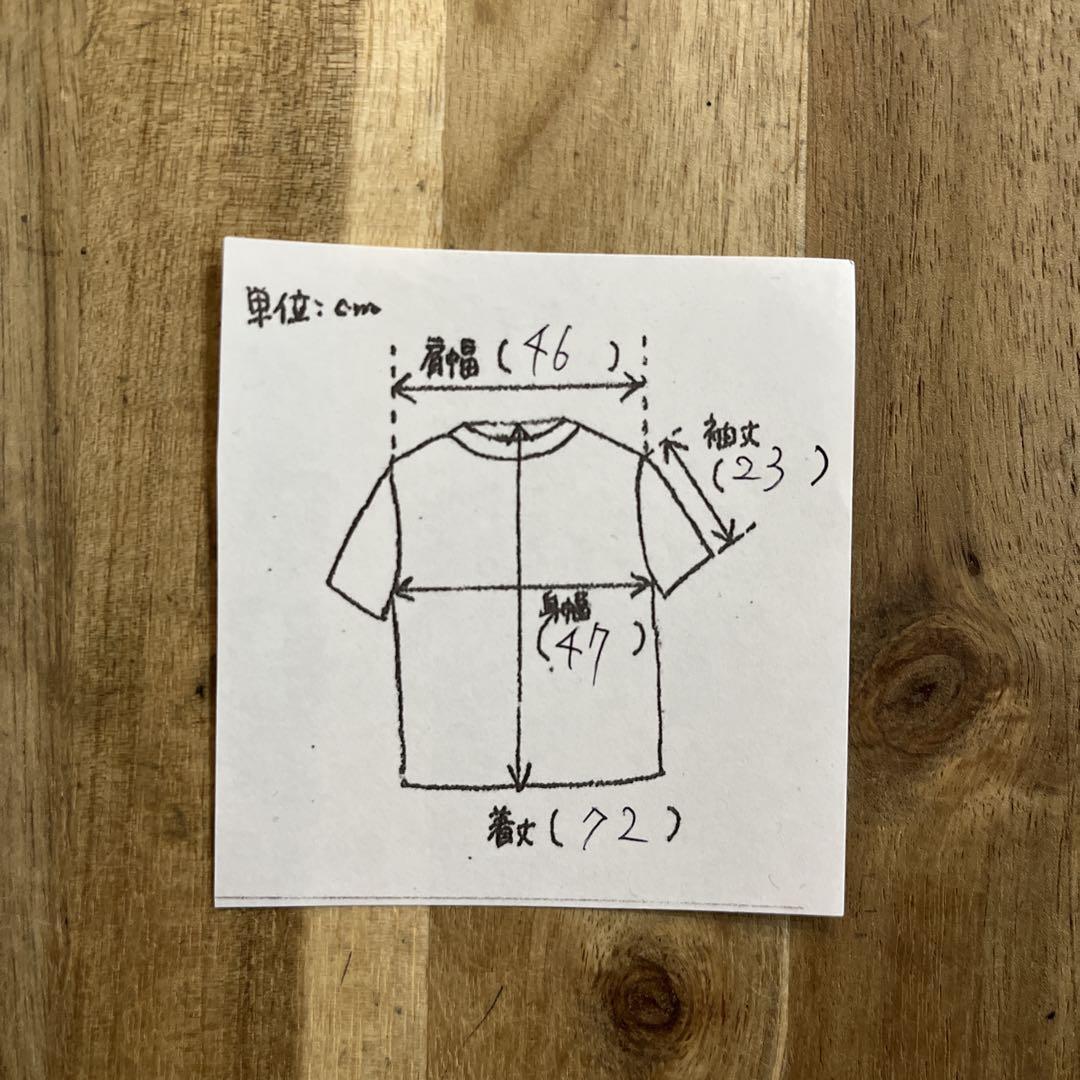 単位:cm
肩幅(46)
袖丈
(23)
身幅
(47)
着丈(72)